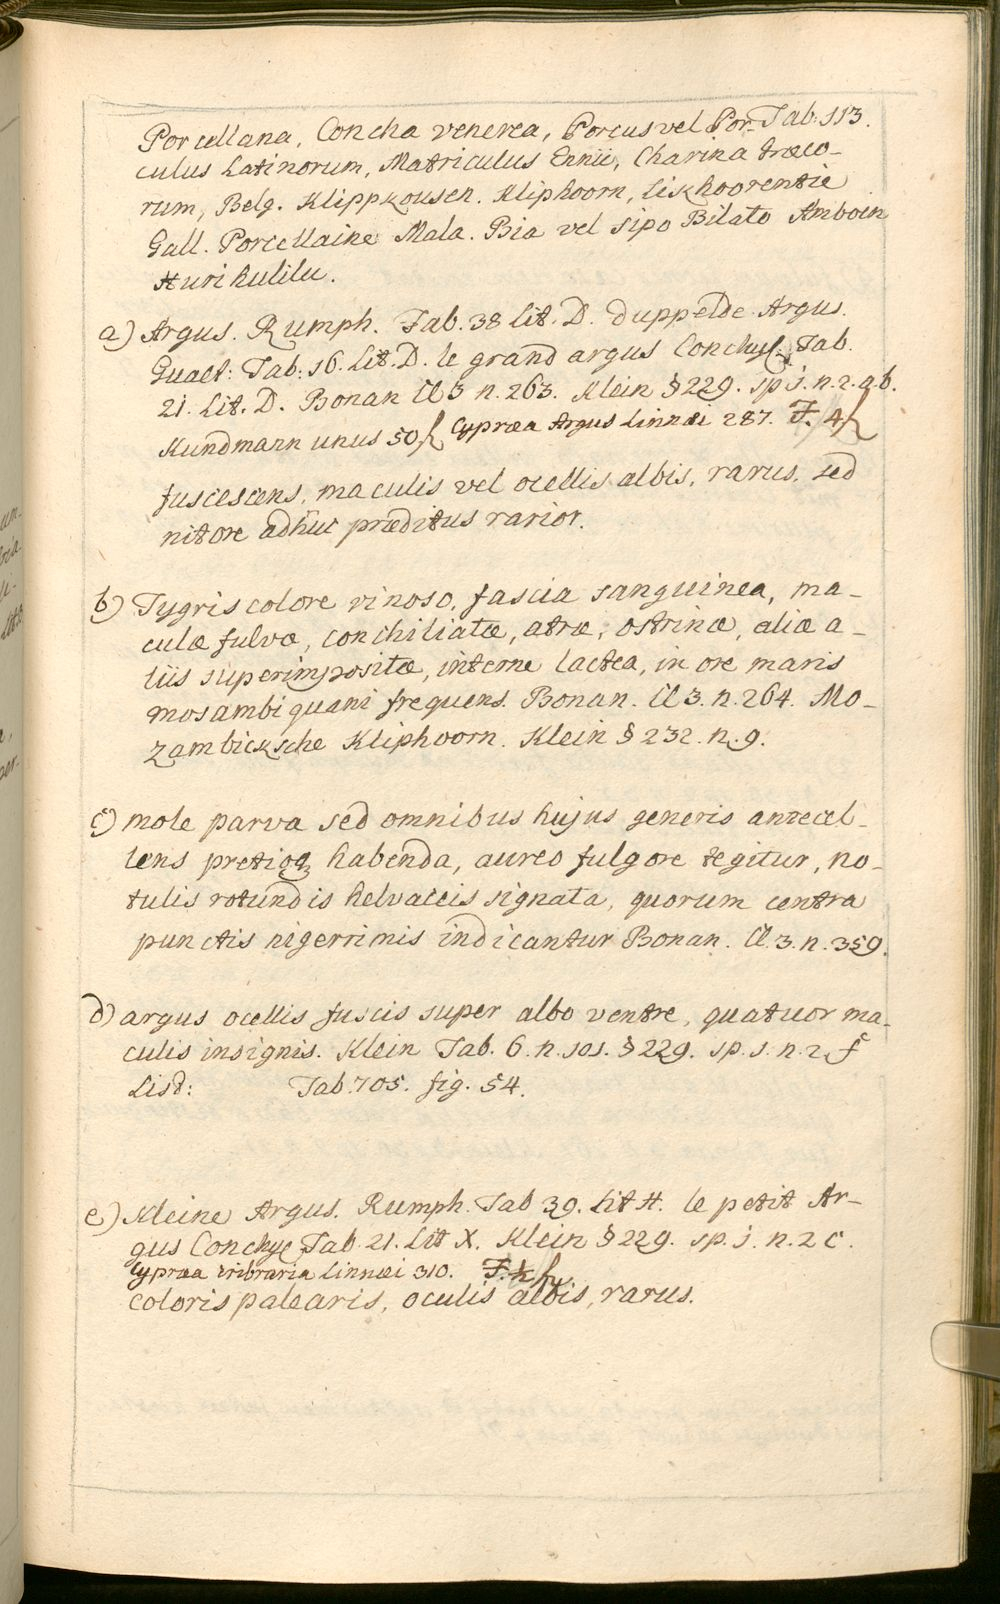 Porcellana, Concha venerea, Porcus vel Por= Tab: 113.
culus Latinorum, Matriculus Ennii, Charina Græco-
rum, Belg. Klippkousen. Kliphoorn, Likhoorentie
Gall. Porcellaine Mala. Bia vel sipo Bilato Amboin
Huri hulilu.
a) Argus. Rumph. Tab. 38 Lit. D. Duppelde Argus.
Gualt: Tab: 16. Lit. D. le grand argus Conchyl. Tab.
21. Lit. D. Bonan Cl 3 n. 263. Klein § 229. sp j. n. 2. a b.
Kundmann unus 50 f Cypræa Argus Linnæi 287. F. 4 f
fuscescens, maculis vel ocellis albis, rarus, sed
nitore adhuc præditus rarior.
b) Tygris colore vinoso, fascia sanguinea, ma-
culæ fulvæ, conchiliatæ, atræ, ostrinæ, aliæ a-
liis superimpositæ, interne lactea, in ore maris
mosambiquani frequens. Bonan. Cl 3. n. 264. Mo-
zambicksche Kliphoorn. Klein § 232. n. 9.
c) mole parva sed omnibus hujus generis antecel-
lens pretioq habenda, aureo fulgore tegitur, no-
tulis rotundis helvaceis signata, quorum centra
punctis nigerrimis indicantur Bonan. Cl. 3. n. 359.
d) argus ocellis fuscis super albo ventre, quatuor ma-
culis insignis. Klein Tab. 6. n. 101. § 229. sp. 1. n. 2. f
List: Tab. 705. fig. 54.
e) Kleine Argus. Rumph. Tab 39. Lit H. le petit Ar-
gus Conchyl Tab. 21. Lit X. Klein § 229. sp. j. n. 2 c.
Cypræa cribraria Linnæi 310. F. ½ f
coloris palearis, oculis albis, rarus.